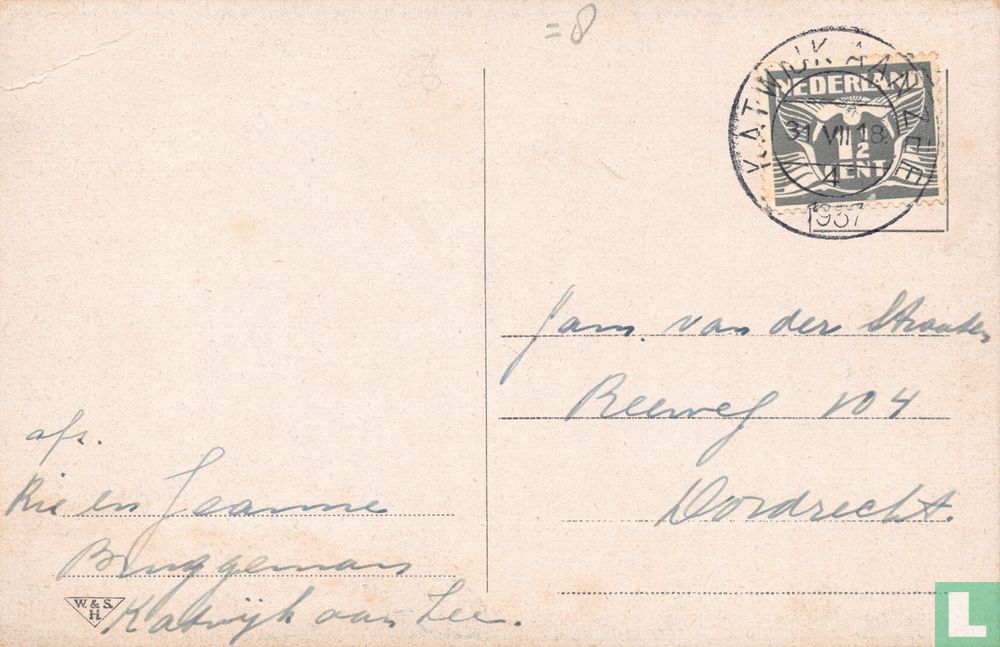 =8
KATWIJK AAN ZEE
31 VII 18
4
1937
NEDERLAND
1½
CENT
Jam. van der Straaten
Reeweg 104
Dordrecht.
afz.
Rie en Jeanne
Bruggeman
Katwijk aan Zee.
W. & S.
H.
L